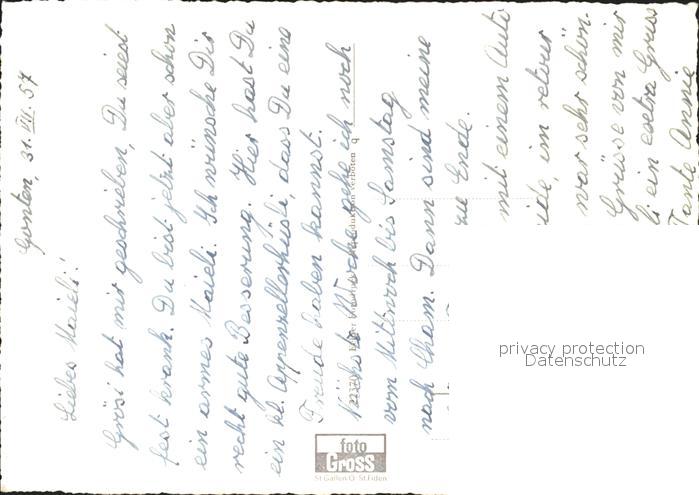 Gonten, 31. VII. 57
Liebes Maieli!
Grosi hat mir geschrieben, Du seiest
fest krank. Du bist jetzt aber schon
ein armes Maieli. Ich wünsche Dir
recht gute Besserung. Hier hast Du
ein kl. Appenzellerhüsli, dass Du eine
Freude haben kannst.
Nächste Woche gehe ich noch
vom Mittwoch bis Samstag
nach Cham. Dann sind meine
zu Ende.
mit einem Auto
ide, im retour
war sehr schön.
Grüsse von mir
li ein extra Gruss
Tante Annie
22370
Reproduktion verboten
foto
GROSS
St Gallen O · St Fiden
privacy protection
Datenschutz